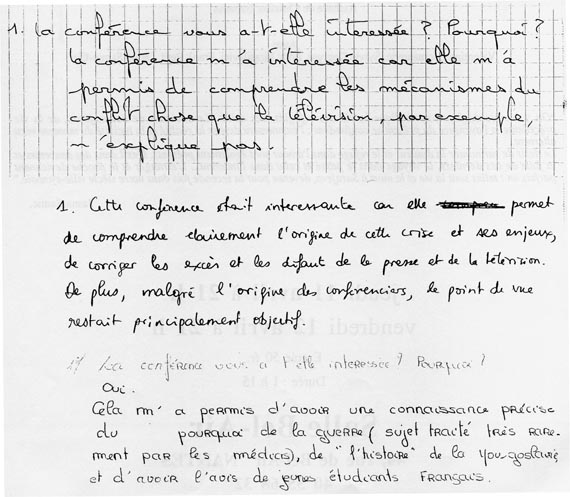 1. La conférence vous a-t-elle intéressée ? Pourquoi ?
La conférence m'a intéressée car elle m'a
permis de comprendre les mécanismes du
conflit chose que la télévision, par exemple,
n'explique pas.
1. Cette conférence était interessante car elle permet
de comprendre clairement l'origine de cette crise et ses enjeux,
de corriger les excès et les défaut de la presse et de la télévision.
De plus, malgré l'origine des conférenciers, le point de vue
restait principalement objectif.
1) La conférence vous a t elle interessée ? Pourquoi ?
Oui.
Cela m'a permis d'avoir une connaissance précise
du pourquoi de la guerre (sujet traité très rare-
ment par les médias), de "l'histoire" de la Yougoslavie
et d'avoir l'avis de jeunes étudiants Français.